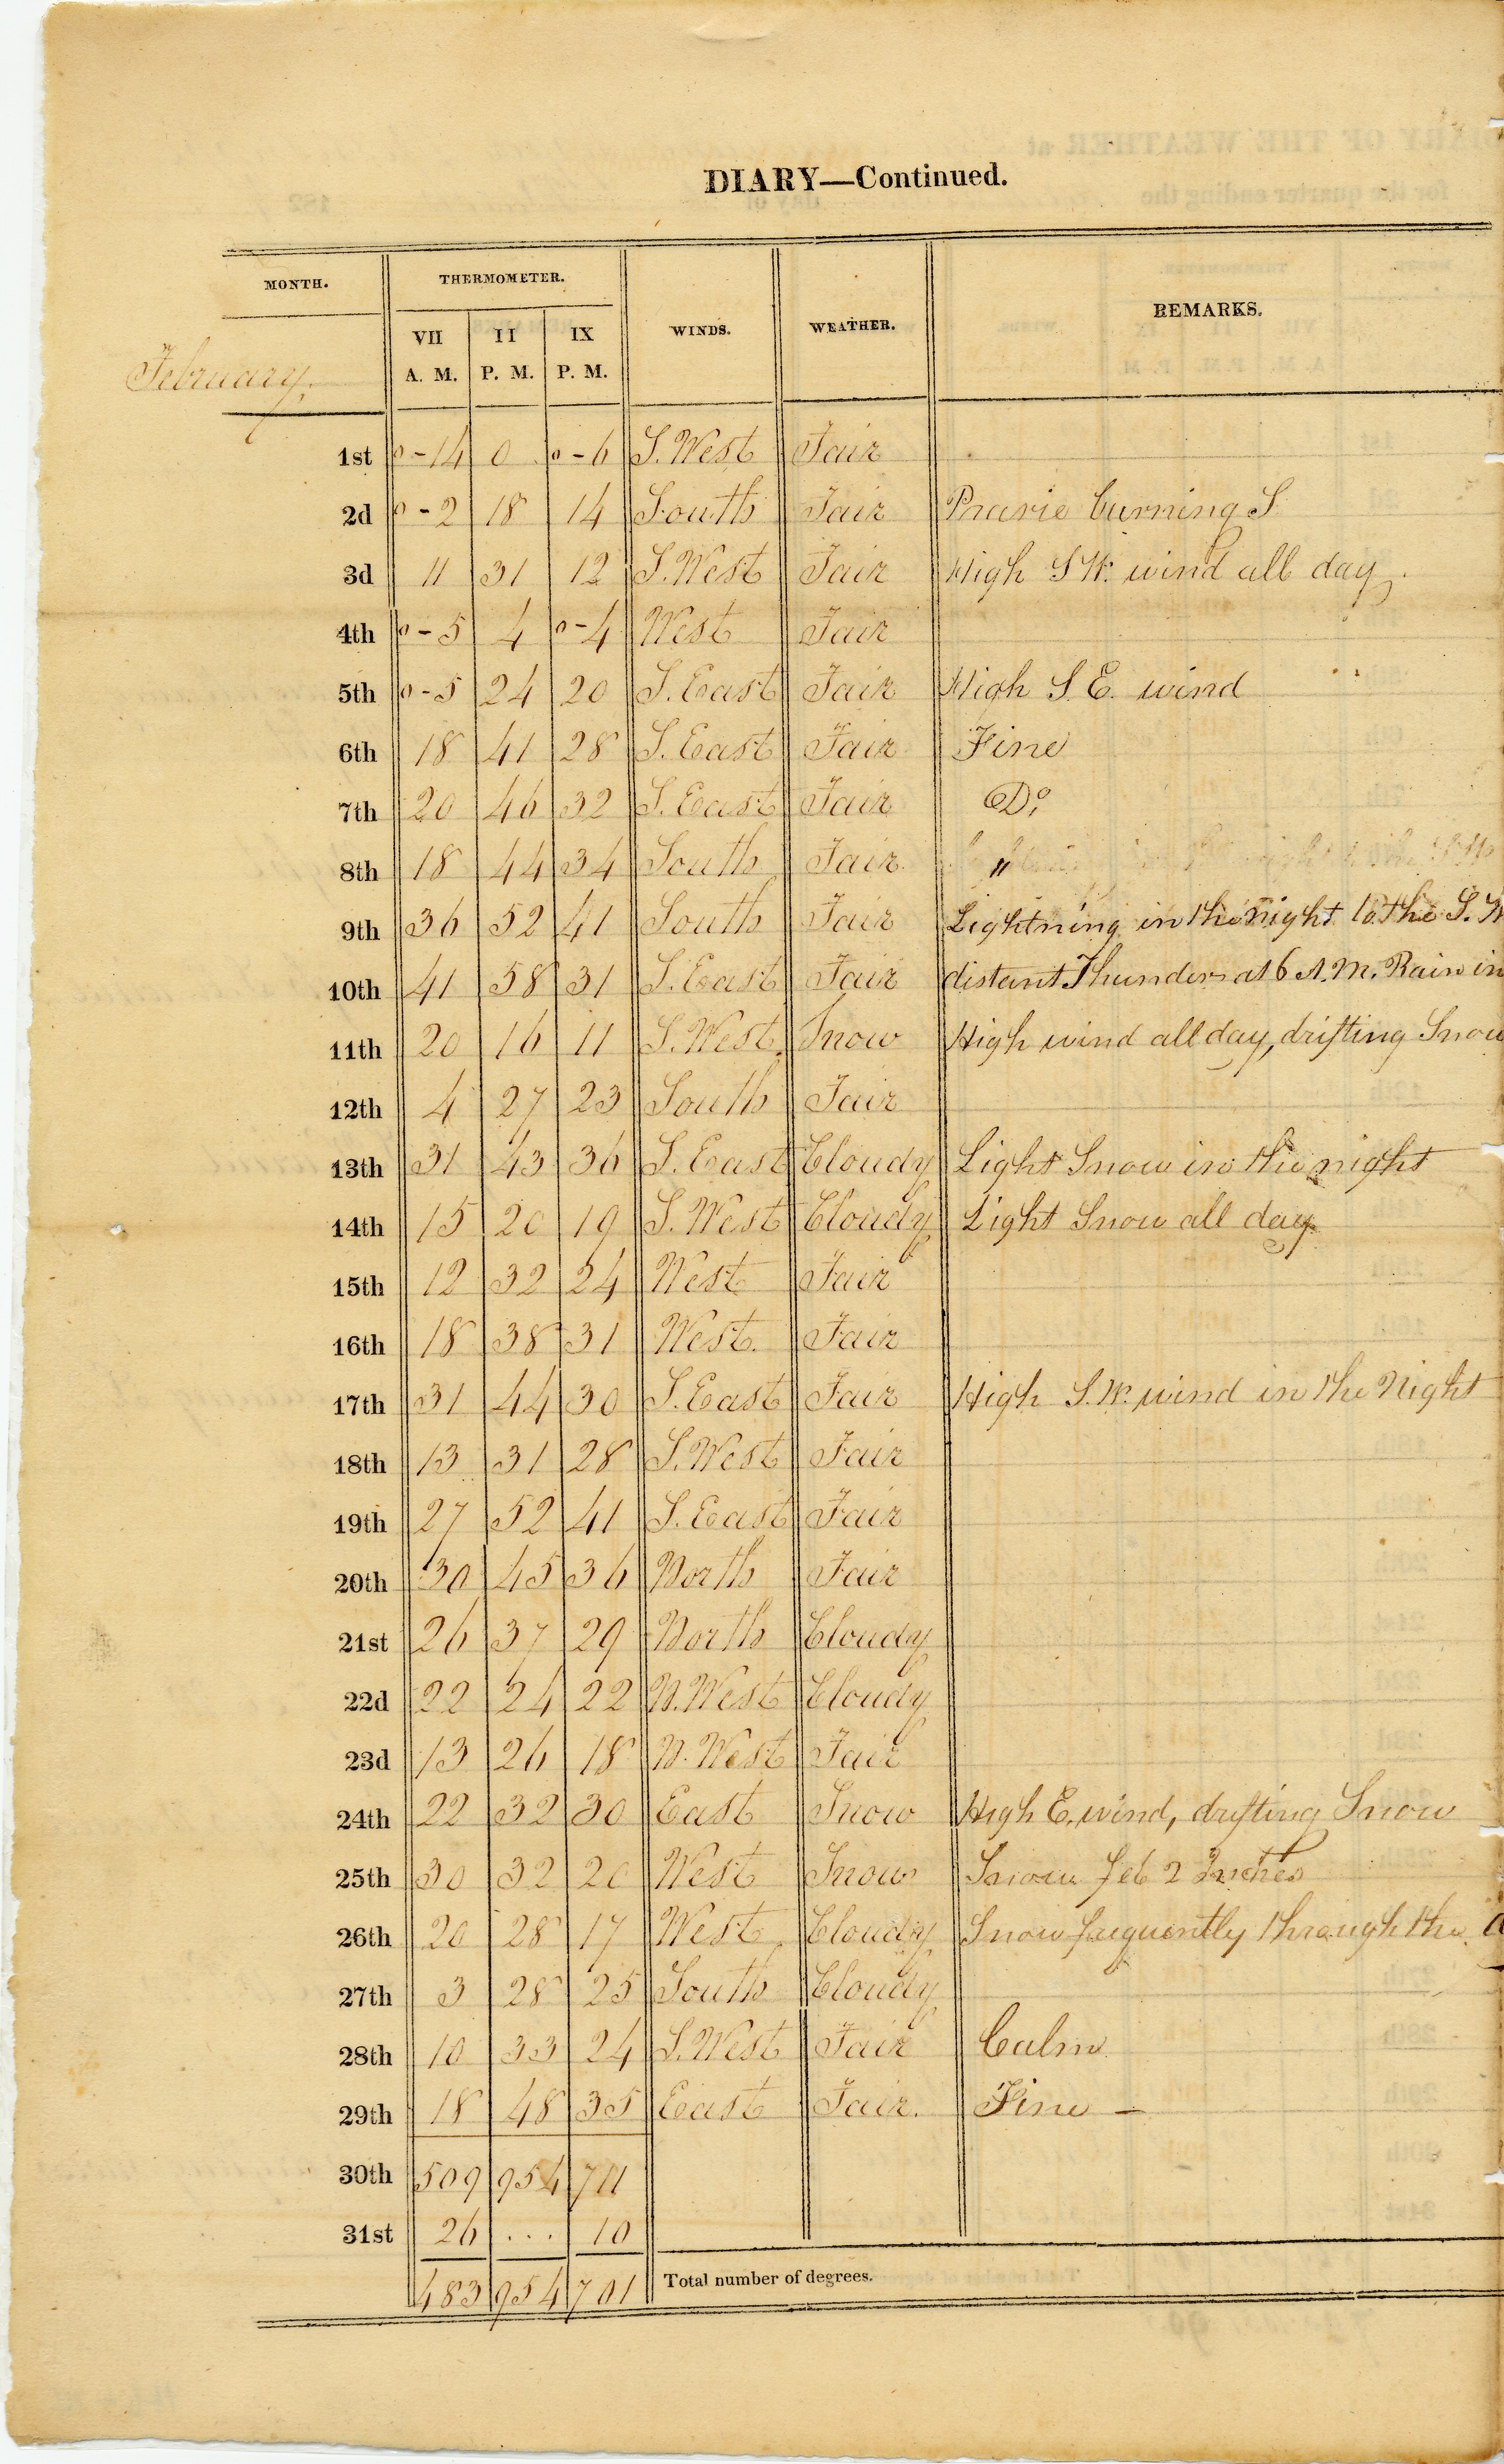 DIARY—Continued.
MONTH. THERMOMETER. WINDS. WEATHER. REMARKS.
VII II IX
A. M. P. M. P. M.
February,
1st 0-14 0 0-6 S. West Fair
2d 0-2 18 14 South Fair Prarie burning S
3d 11 31 12 S. West Fair High S W. wind all day.
4th 0-5 4 0-4 West Fair
5th 0-5 24 20 S. East Fair High S. E. wind
6th 18 41 28 S. East Fair Fine
7th 20 46 32 S. East Fair Do.
8th 18 44 34 South Fair "
9th 36 52 41 South Fair Lightning in the night to the S. W
10th 41 58 31 S. East Fair distant Thunder at 6 A.M. Rain in
11th 20 16 11 S. West Snow High wind all day, drifting Snow
12th 4 27 23 South Fair
13th 31 43 36 S. East Cloudy Light Snow in the night
14th 15 20 19 S. West Cloudy Light Snow all day
15th 12 32 24 West Fair
16th 18 38 31 West. Fair
17th 31 44 30 S. East Fair High S. W. wind in the Night
18th 13 31 28 S. West Fair
19th 27 52 41 S. East Fair
20th 30 45 36 North Fair
21st 26 37 29 North Cloudy
22d 22 24 22 N. West Cloudy
23d 13 26 18 N. West Fair
24th 22 32 30 East Snow High E. wind, drifting Snow
25th 30 32 20 West Snow Snow fell 2 Inches
26th 20 28 17 West Cloudy Snow frequently through the
27th 3 28 25 South Cloudy
28th 10 33 24 S. West Fair Calm
29th 18 48 35 East Fair. Fine –
30th 509 954 711
31st 26 ... 10
483 954 701 Total number of degrees.